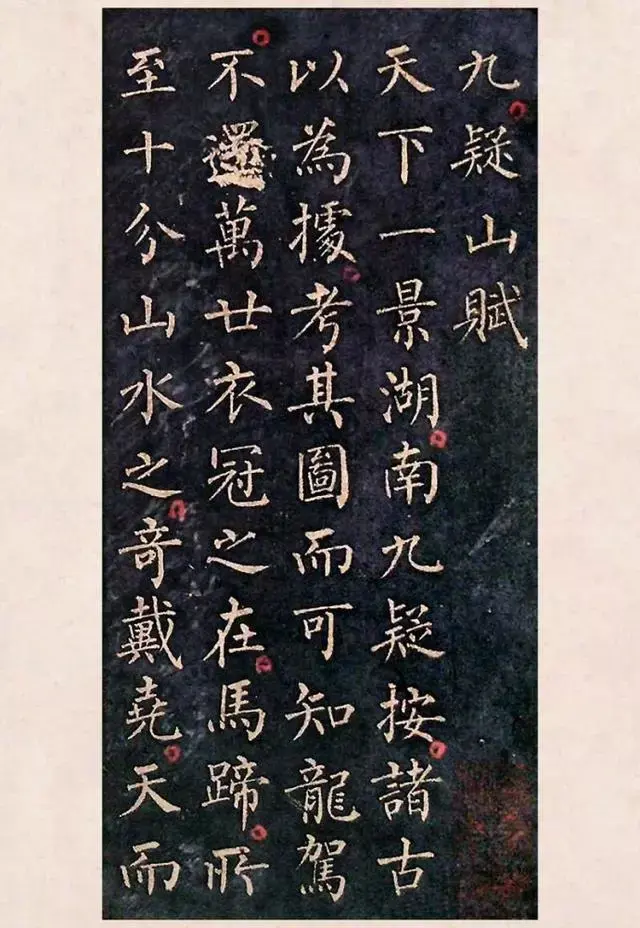 九疑山賦
天下一景湖南九疑按諸古
以為據考其圖而可知龍駕
不還萬廿衣冠之在馬蹄所
至十分山水之奇戴堯天而